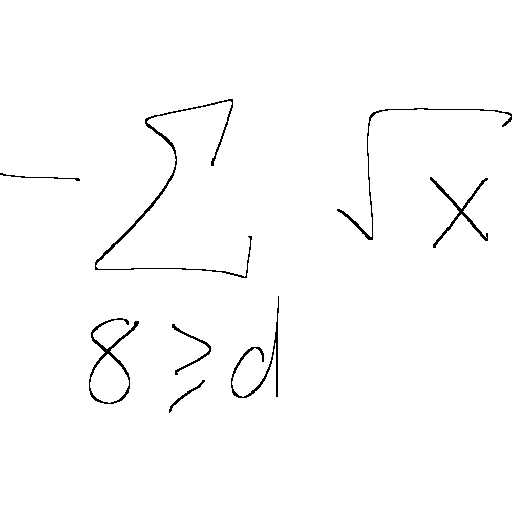 -\sum_{8 \geq d} \sqrt{x}